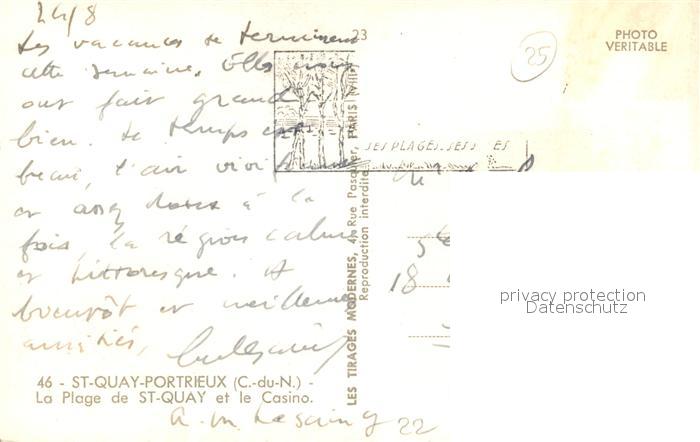 24/8
Les vacances se terminent
cette semaine. Elles nous
ont fait grand
bien. Le temps est
beau, l'air vivi
et assez doux à la
fois, la région calme
et pittoresque. A
bientôt et meilleures
amitiés,
46 - ST-QUAY-PORTRIEUX (C.-du-N.) -
La Plage de ST-QUAY et le Casino.
22
23
LES TIRAGES MODERNES, 4, Rue Pasquier, PARIS (VIII
Reproduction interdite
SES PLAGES. SES
25
PHOTO
VERITABLE
18
privacy protection
Datenschutz